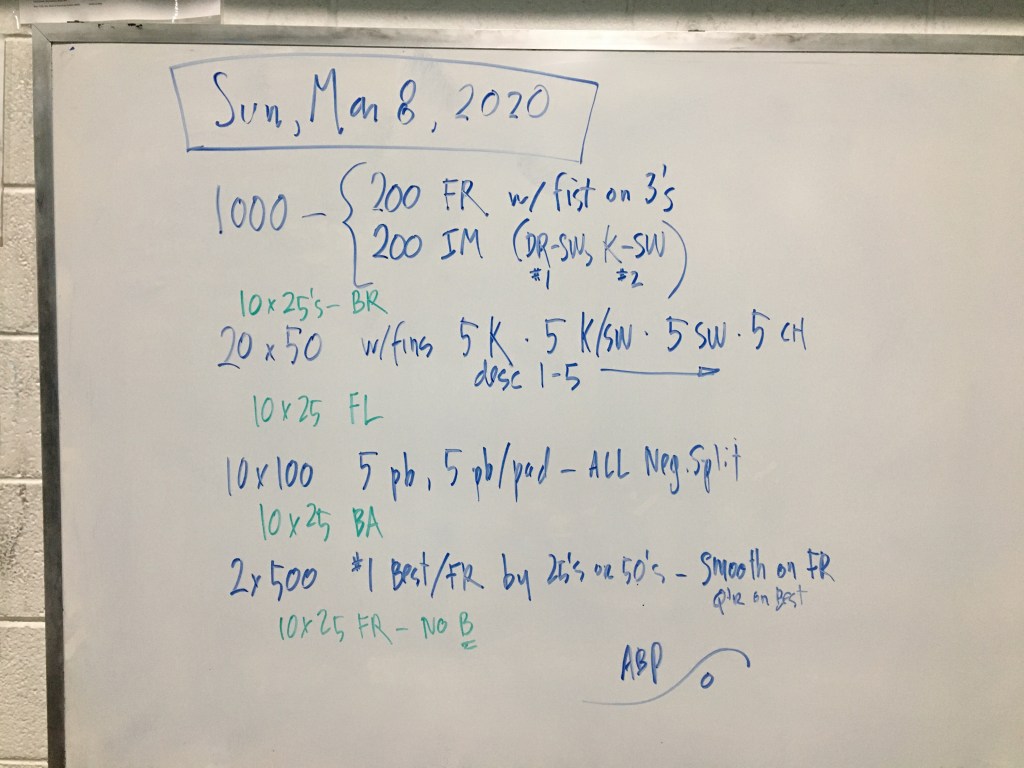 Sun, Mar 8, 2020
1000 - { 200 FR w/ fist on 3's
200 IM (DR-SW, K-SW)
#1 #2
10 x 25's - BR
20 x 50 w/fins 5 K · 5 K/SW · 5 SW · 5 CH
desc 1-5 →
10 x 25 FL
10 x 100 5 pb, 5 pb/pad - ALL Neg. Split
10 x 25 BA
2 x 500 #1 Best/FR by 25's or 50's - Smooth on FR
on Best
10 x 25 FR - No B
ABP